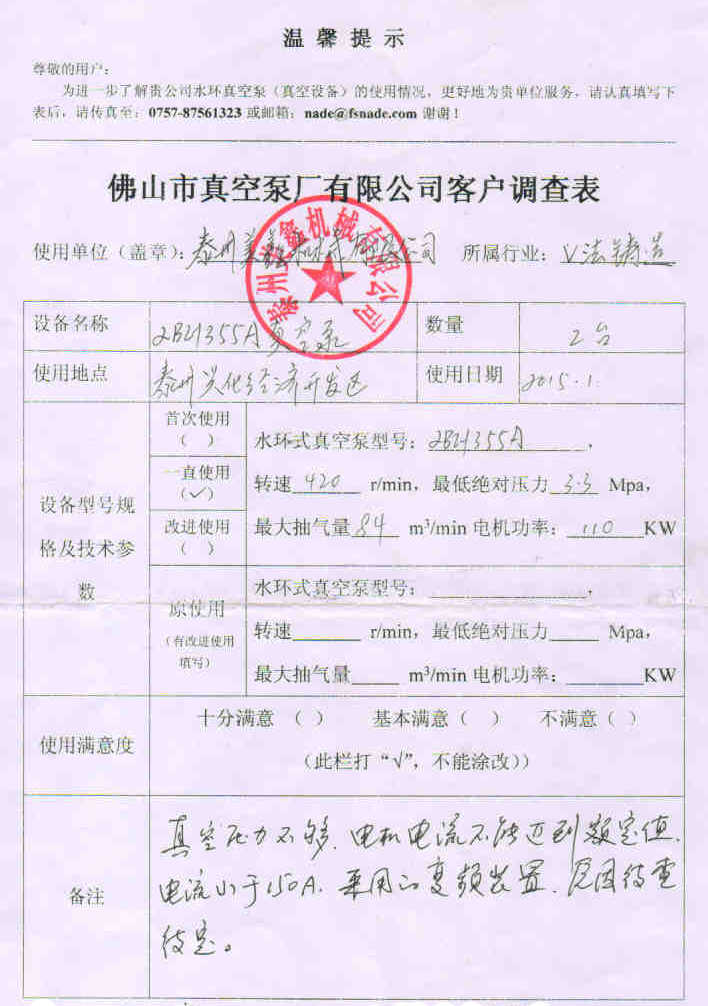 温 馨 提 示
尊敬的用户：
为进一步了解贵公司水环真空泵（真空设备）的使用情况，更好地为贵单位服务，请认真填写下
表后，请传真至：0757-87561323 或邮箱：nade@fsnade.com 谢谢！
佛山市真空泵厂有限公司客户调查表
使用单位（盖章）：泰州 机械有限公司 所属行业：V法铸造
设备名称 2BEY355A真空泵 数量 2台
使用地点 泰州兴化经济开发区 使用日期 2015.1.
设备型号规格及技术参数
首次使用
（ ）
一直使用
（√）
改进使用
（ ）
水环式真空泵型号：2BEY355A，
转速 420 r/min，最低绝对压力 3.3 Mpa，
最大抽气量 84 m³/min 电机功率：110 KW
原使用
（有改进使用
填写）
水环式真空泵型号：，
转速 r/min，最低绝对压力 Mpa，
最大抽气量 m³/min 电机功率： KW
使用满意度
十分满意 （ ） 基本满意（ ） 不满意（ ）
（此栏打“√”，不能涂改））
备注
真空压力不够，电机电流不能达到额定值，
电流小于150A，采用的变频装置，原因待查
待定。